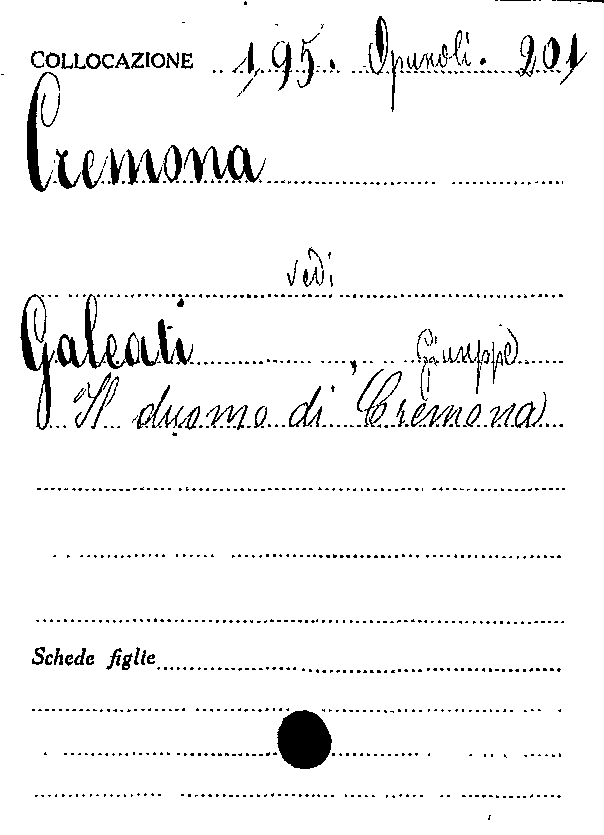 COLLOCAZIONE 195. Opuscoli. 201
Cremona
vedi
Galeati, Giuseppe
Il duomo di Cremona
Schede figlie